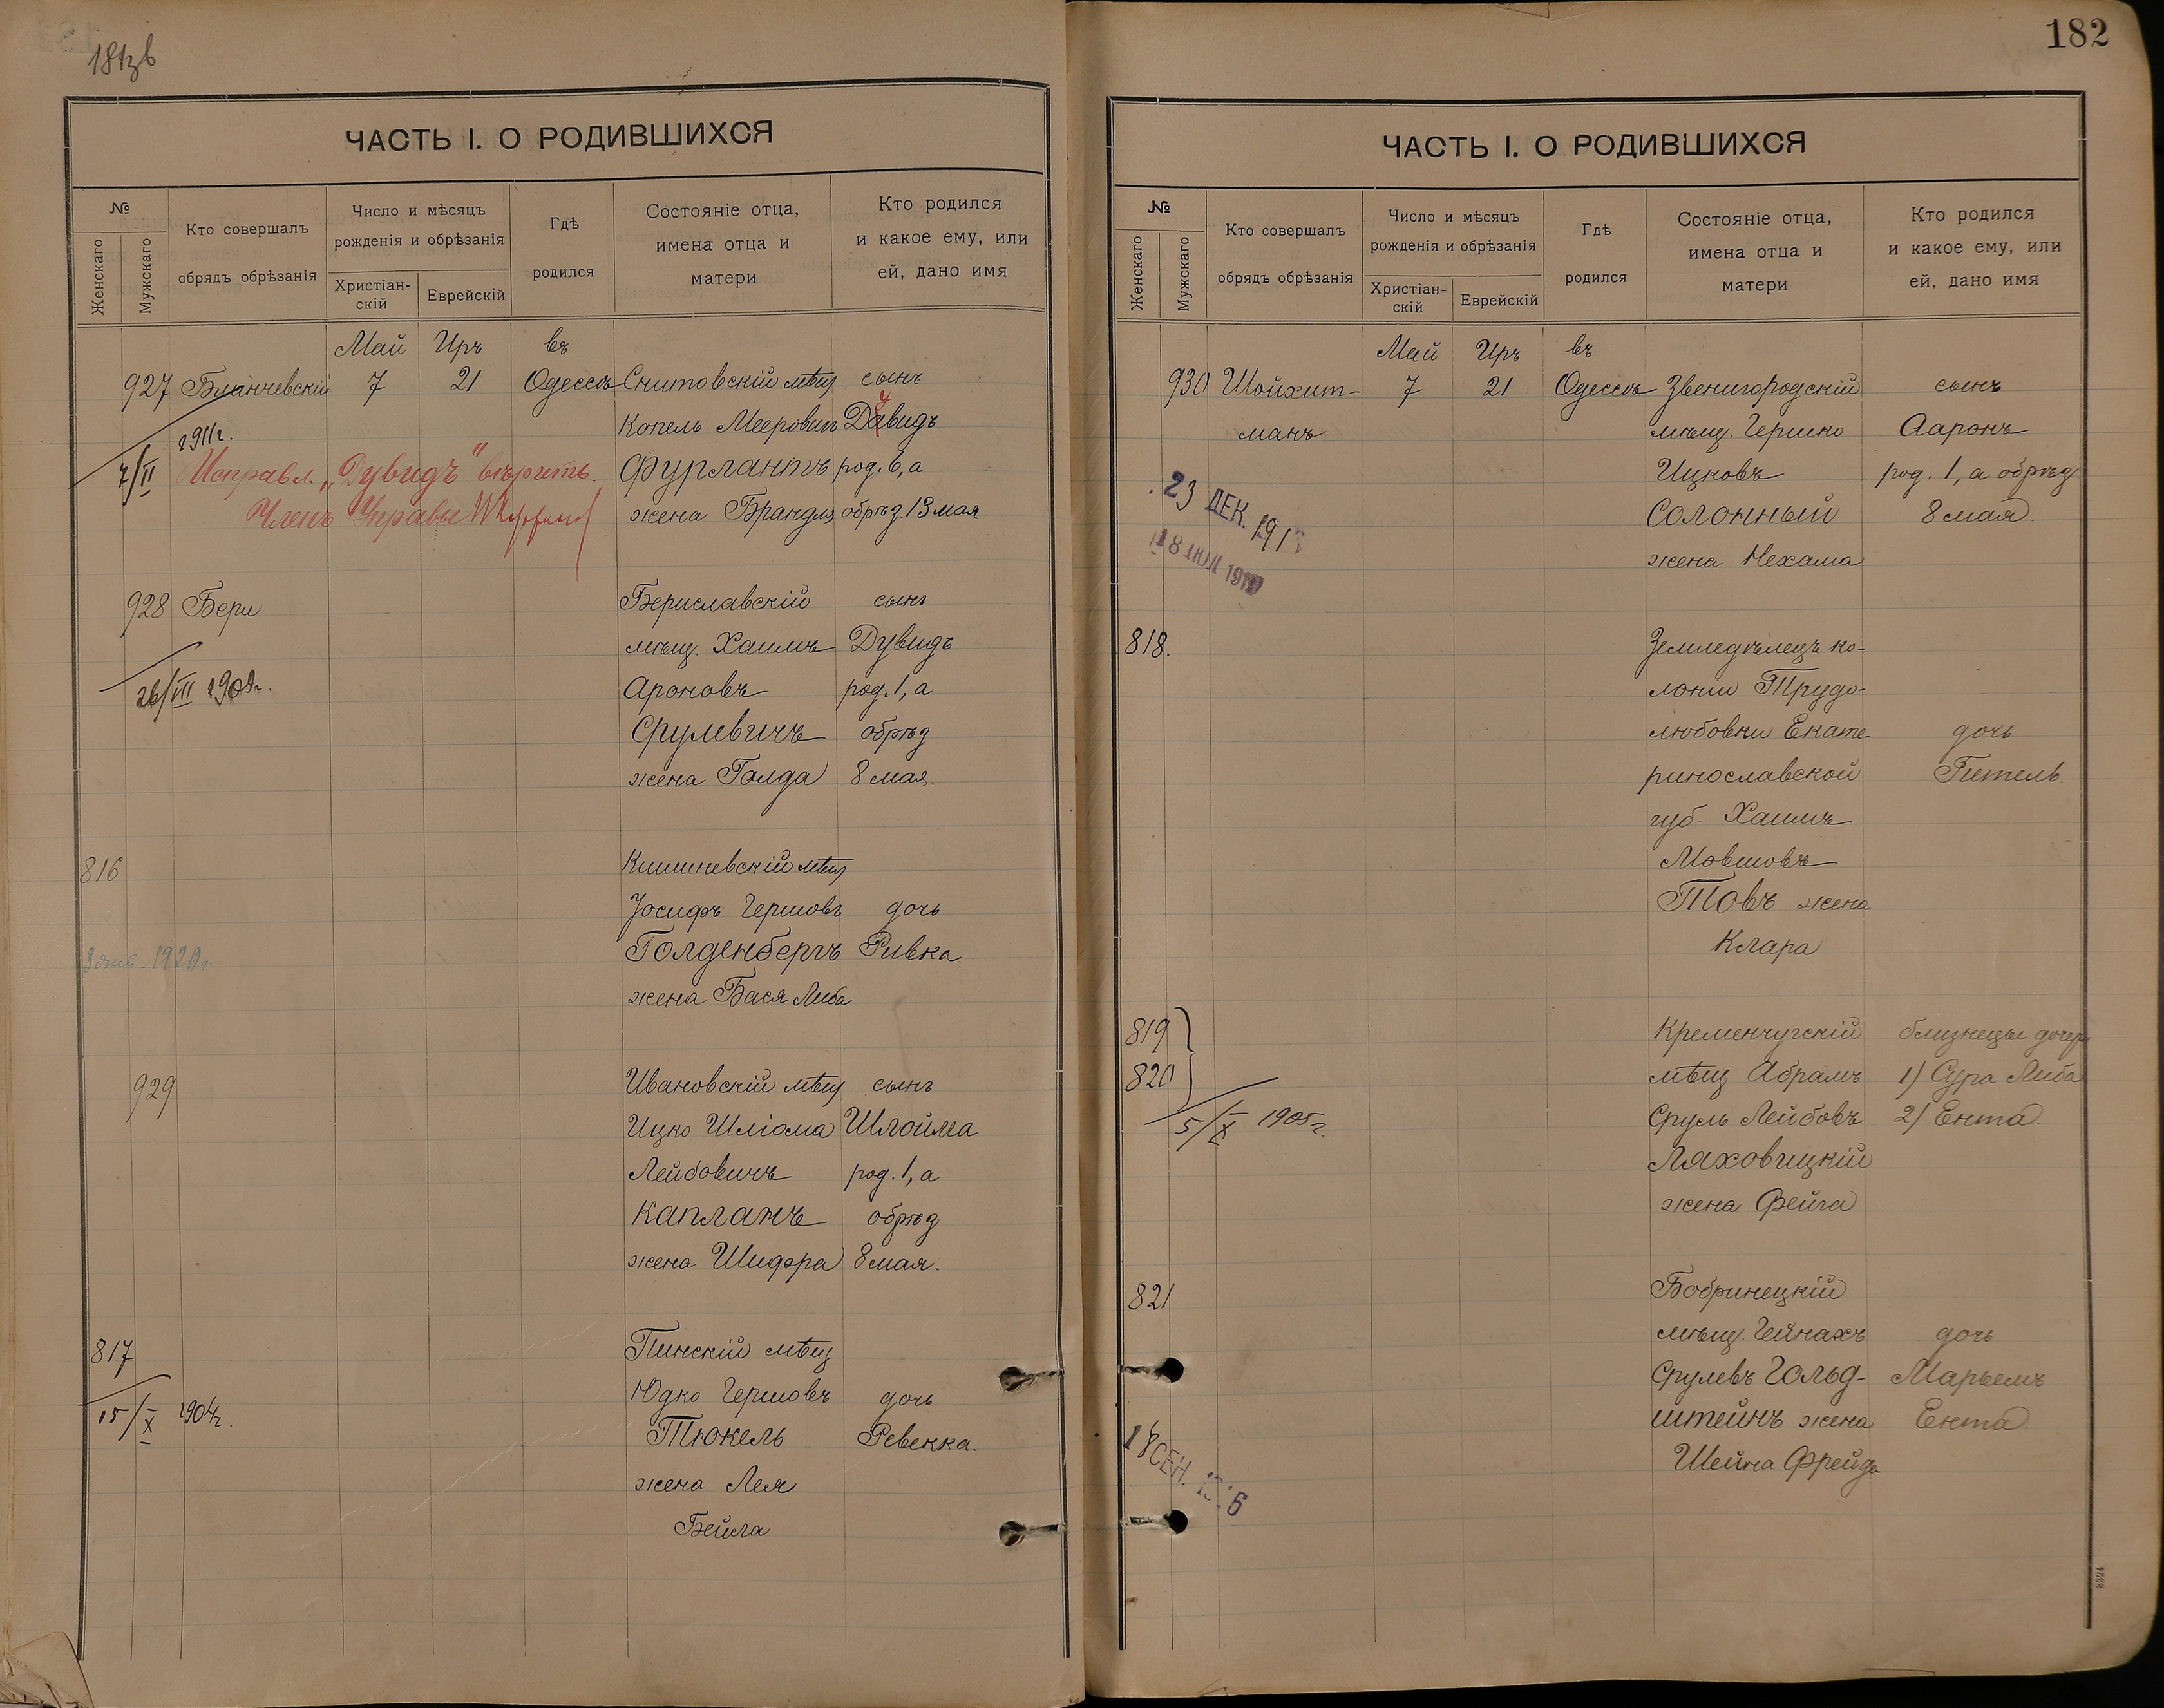 181зв
ЧАСТЬ I. О РОДИВШИХСЯ
№
Женскаго
Мужскаго
Кто совершалъ
обрядъ обрѣзанія
Число и мѣсяцъ
рожденія и обрѣзанія
Христіан-
скій
Еврейскій
Гдѣ
родился
Состояніе отца,
имена отца и
матери
Кто родился
и какое ему, или
ей, дано имя
Май Иръ въ
927 Бланчевскій 7 21 Одессѣ Снитовскій мѣщ сынъ
Копель Мееровичъ Дувидъ
1911г.
7/II Исправл. „Дувидъ" вѣрить. Фурлантъ род. 6, а
Членъ Управы жена Брандля обрѣз. 13 мая
928 Бери Бериславскій сынъ
мѣщ. Хаимъ Дувидъ
26/VII 1909г. Ароновъ род. 1, а
Срулевичъ обрѣз
жена Голда 8 мая.
816 Кишиневскій мѣщ
Іосифъ Гершовъ дочь
1920г. Голденбергъ Ривка
жена Бася Либа
929 Ивановскій мѣщ сынъ
Ицко Шліома Шлойма
Лейбовичъ род. 1, а
Капланъ обрѣз
жена Шифра 8 мая.
817 Пинскій мѣщ
Юдко Гершовъ дочь
15/X 1904г. Тюкель Ревекка.
жена Лея
Бейла
182
ЧАСТЬ I. О РОДИВШИХСЯ
№
Женскаго
Мужскаго
Кто совершалъ
обрядъ обрѣзанія
Число и мѣсяцъ
рожденія и обрѣзанія
Христіан-
скій
Еврейскій
Гдѣ
родился
Состояніе отца,
имена отца и
матери
Кто родился
и какое ему, или
ей, дано имя
Май Иръ въ
930 Шойхит- 7 21 Одессѣ Звенигородскій сынъ
манъ мѣщ. Гершко Ааронъ
Ицковъ род. 1, а обрѣз
23 ДЕК. 191 Солонный 8 мая
18 ІЮЛ 1919 жена Нехама
818. Земледѣлецъ ко-
лоніи Трудо-
любовки Екате- дочь
ринославской Гитель
губ. Хаимъ
Мовшовъ
Товъ жена
Клара
819 Кременчугскій близнецы дочери
820 мѣщ Абрамъ 1) Сура Либа
5/X 1905г. Сруль Лейбовъ 2) Ента
Ляховицкій
жена Фейга
821 Бобринецкій
мѣщ. Гейнахъ дочь
Срулевъ Гольд- Марьемъ
штейнъ жена Ента
18 СЕН. Шейна Фрейда
8394